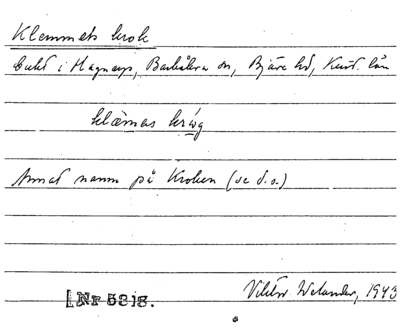 Klemmets krok
i Magnarp, Barkåkra sn, Bjäre hd, Krist. län
klæmas kråg
Annat namn på Kroken (se d.o.)
Nr 5818.
Viktor Welander, 1943